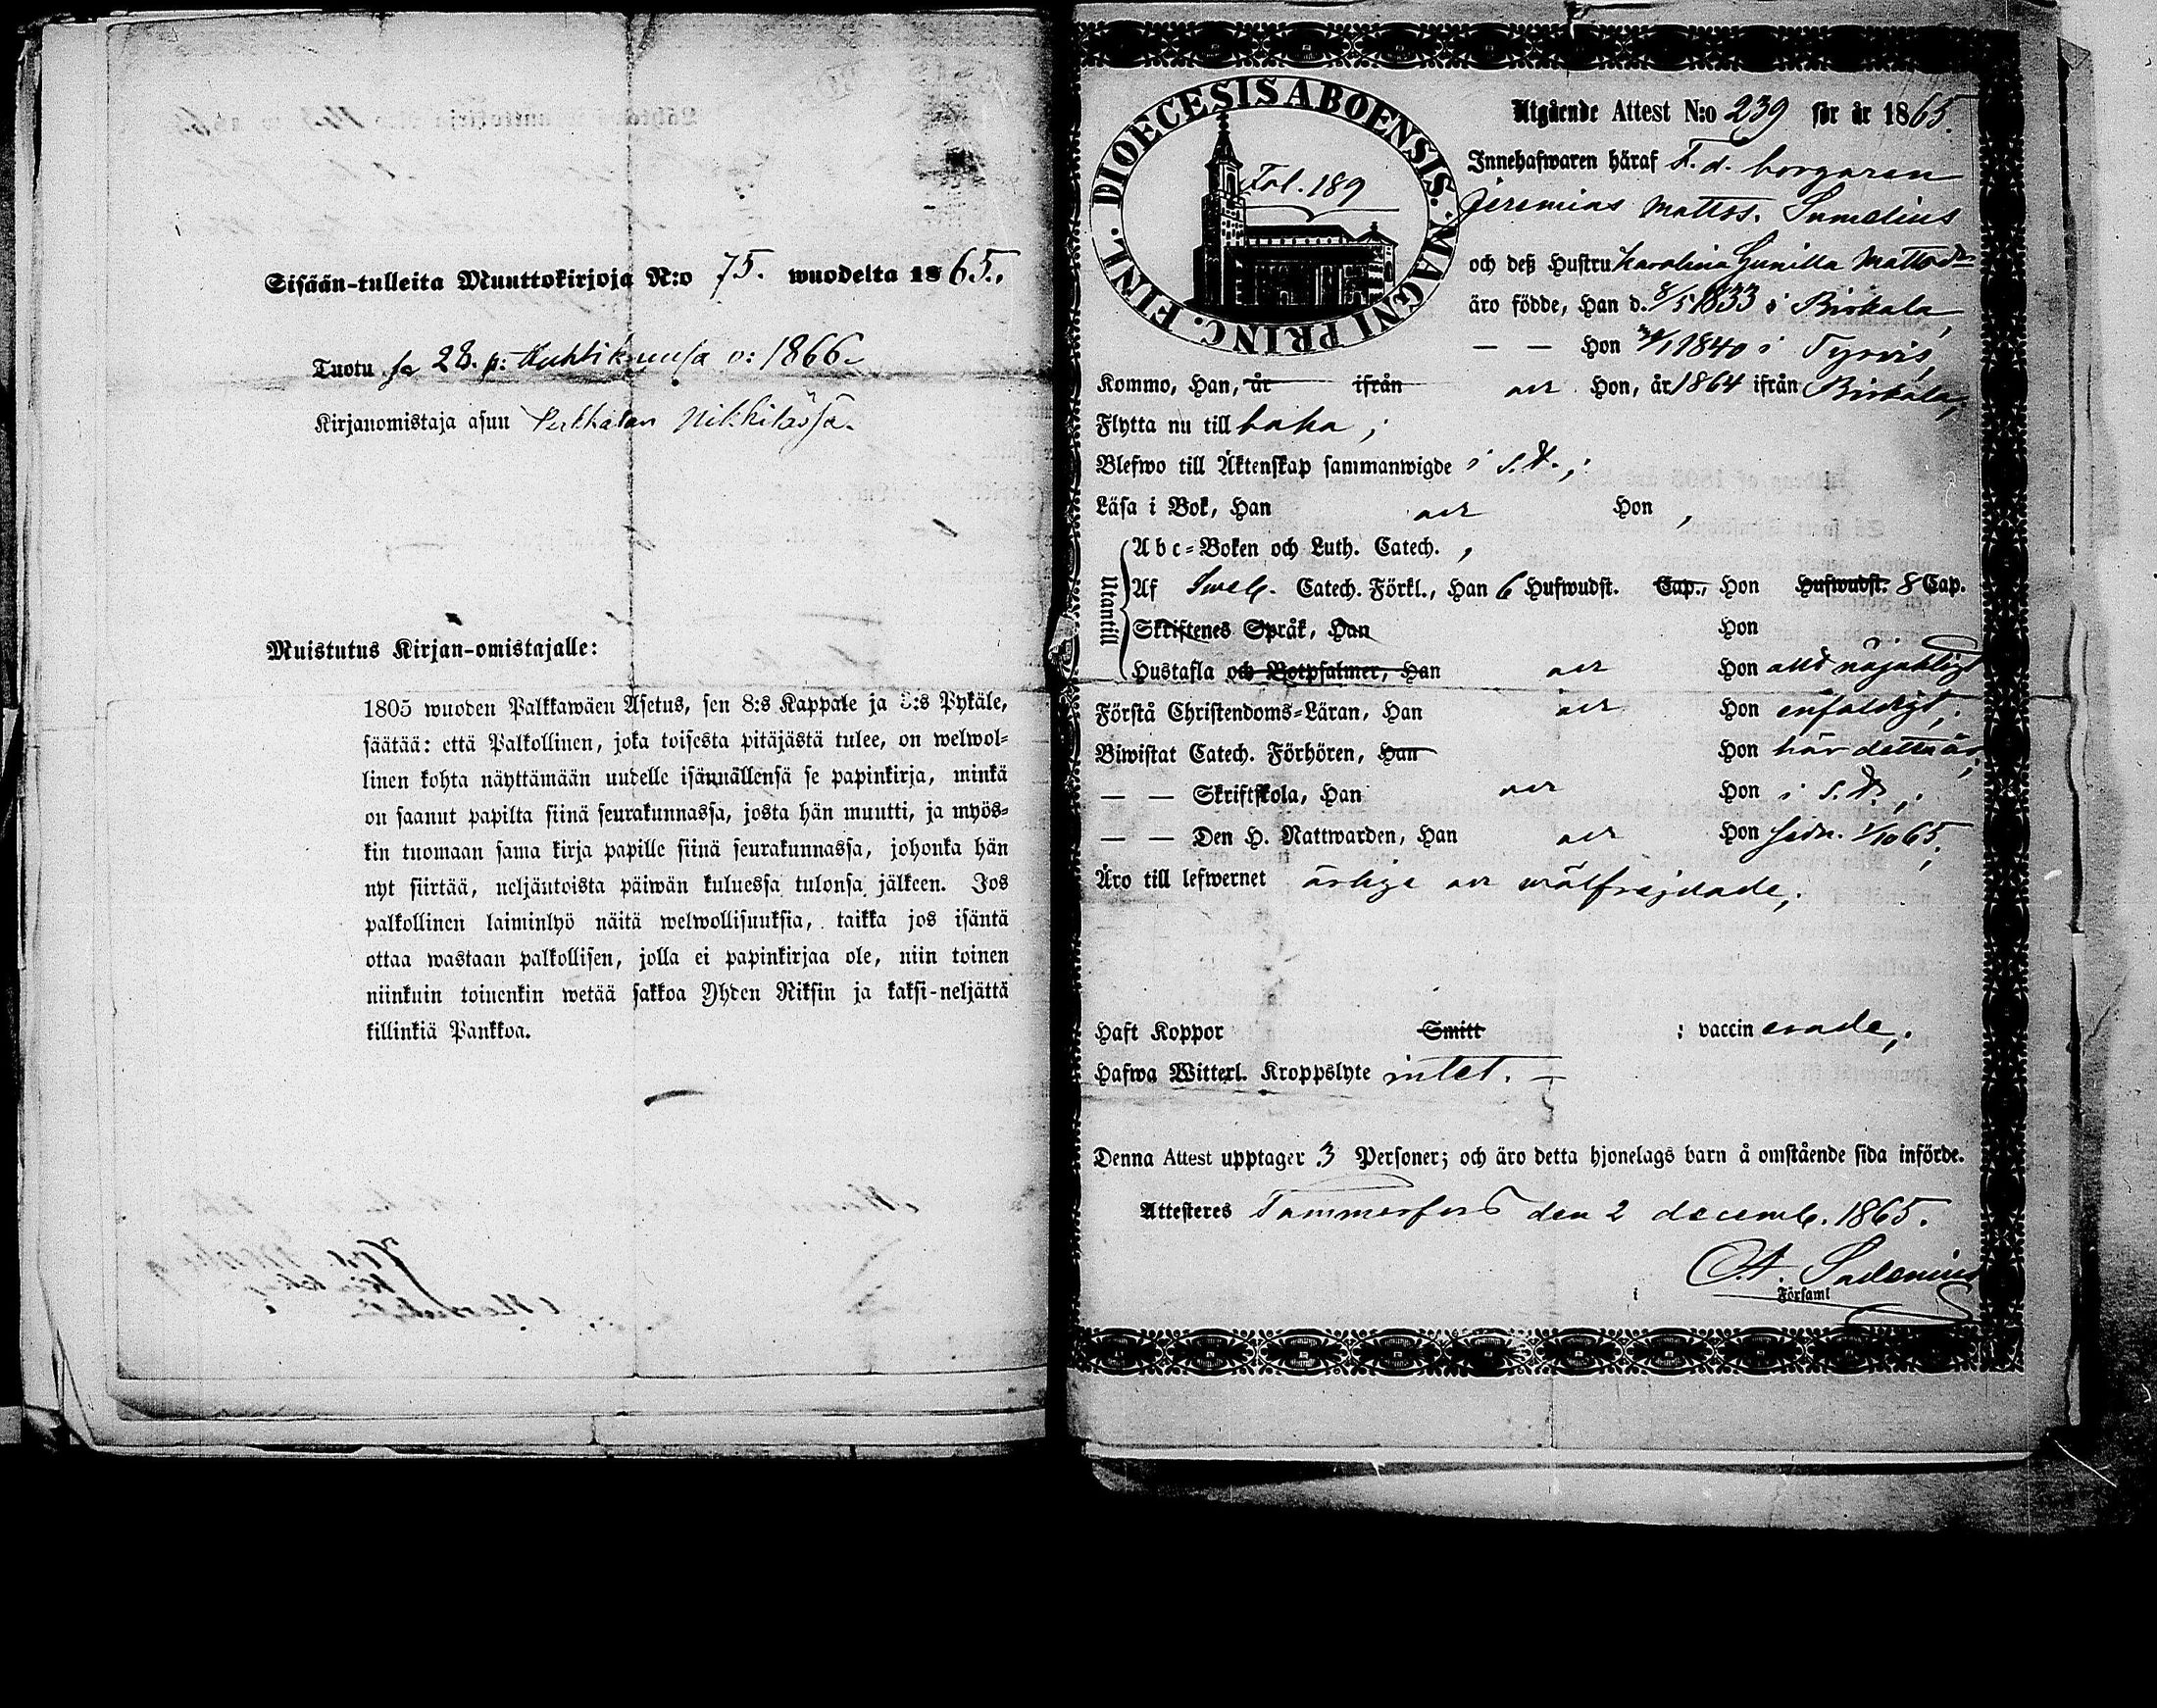 Sisään-tulleita Muuttokirjoja N:o 75. wuodelta 1865.
Tuotu ja 28. p: Huhtikuusa v: 1866.
Kirjanomistaja asuu Nikkilässä.
Muistutus Kirjan-omistajalle:
1805 wuoden Palkkawäen Asetus, sen 8:s Kappale ja 3:s Pykäle,
säätää: että Palkollinen, joka toisesta pitäjästä tulee, on welwol-
linen kohta näyttämään uudelle isännällensä se papinkirja, minkä
on saanut papilta siinä seurakunnassa, josta hän muutti, ja myös-
kin tuomaan sama kirja papille siinä seurakunnassa, johonka hän
nyt siirtää, neljäntoista päiwän kuluessa tulonsa jälkeen. Jos
palkollinen laiminlyö näitä welwollisuuksia, taikka jos isäntä
ottaa wastaan palkollisen, jolla ei papinkirjaa ole, niin toinen
niinkuin toinenkin wetää sakkoa Yhden Riksin ja kaksi-neljättä
killinkiä Pankkoa.
DIOECESIS ABOENSIS. MAGNI PRINC. FINL.
Fol. 189
Utgående Attest N:o 239 för år 1865.
Innehafwaren häraf F. d. borgaren
Jeremias Mattss. Sumelius
och deß Hustru Karolina Gunilla Mattsdr
äro födde, Han d. 8/5 1833 i Birkala,
— — Hon 1840 i Tyrvis,
Kommo, Han, år ifrån och Hon, år 1864 ifrån Birkala,
Flytta nu till baka;
Blefwo till Äktenskap sammanwigde i s. å.;
Läsa i Bok, Han och Hon,
Utantill
Abc-Boken och Luth. Catech.,
Af Sweb. Catech. Förkl., Han 6 Hufwudst. Cap., Hon Hufwudst. 8 Cap.
Skriftenes Språk, Han Hon
Hustafla och Botpsalmer, Han och Hon allt nöjaktligt
Förstå Christendoms-Läran, Han och Hon enfaldigt;
Biwistat Catech. Förhören, Han Hon här detta år,
— — Skriftskola, Han och Hon i s. å.;
— — Den H. Nattwarden, Han och Hon sedn. 1/10 65;
Äro till lefwernet ärlige och wälfrejdade;
Haft Koppor Smitt : vaccinerade;
Hafwa Witterl. Kroppslyte intet. —
Denna Attest upptager 3 Personer; och äro detta hjonelags barn å omstående sida införde.
Attesteres Tammerfors den 2 decemb. 1865.
i Församl